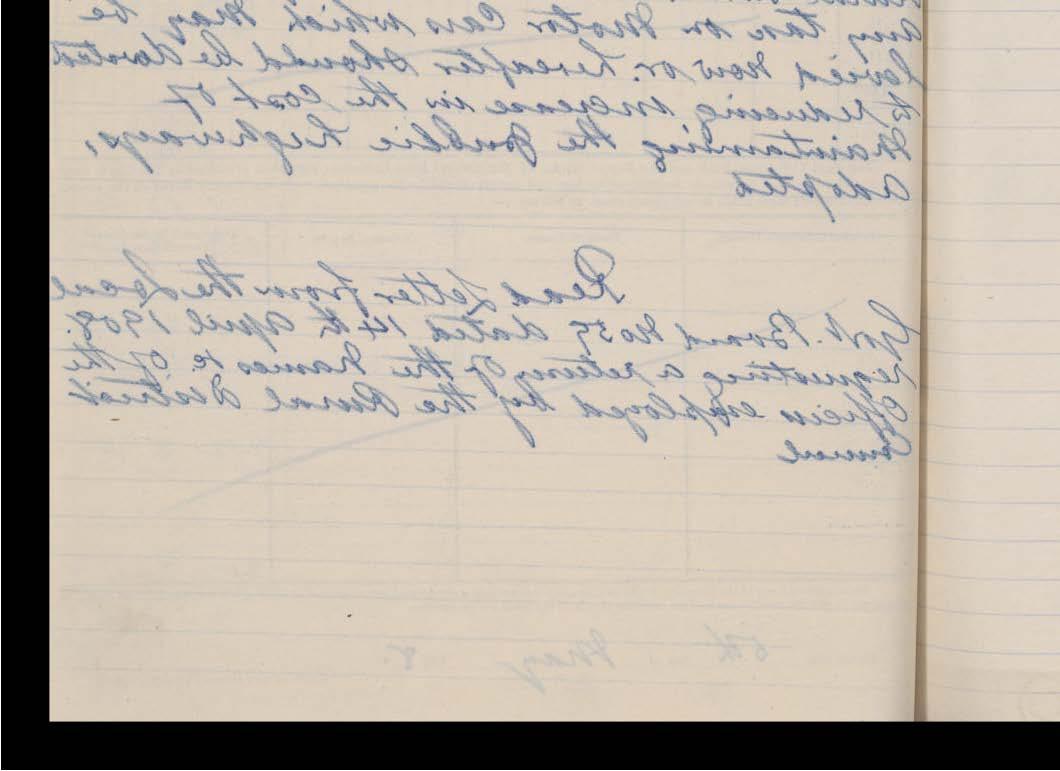 any tax on Motor Cars which May be
levied now or hereafter should be devoted
to reducing increase in the Cost of
Maintaining the Public Highways,
Adopted
Read Letter from the Local
Govt. Board No 59 dated 14th April 1908.
requesting a return of the Names &c. of the
Officers employed by the Rural District
Council
5th May 8.